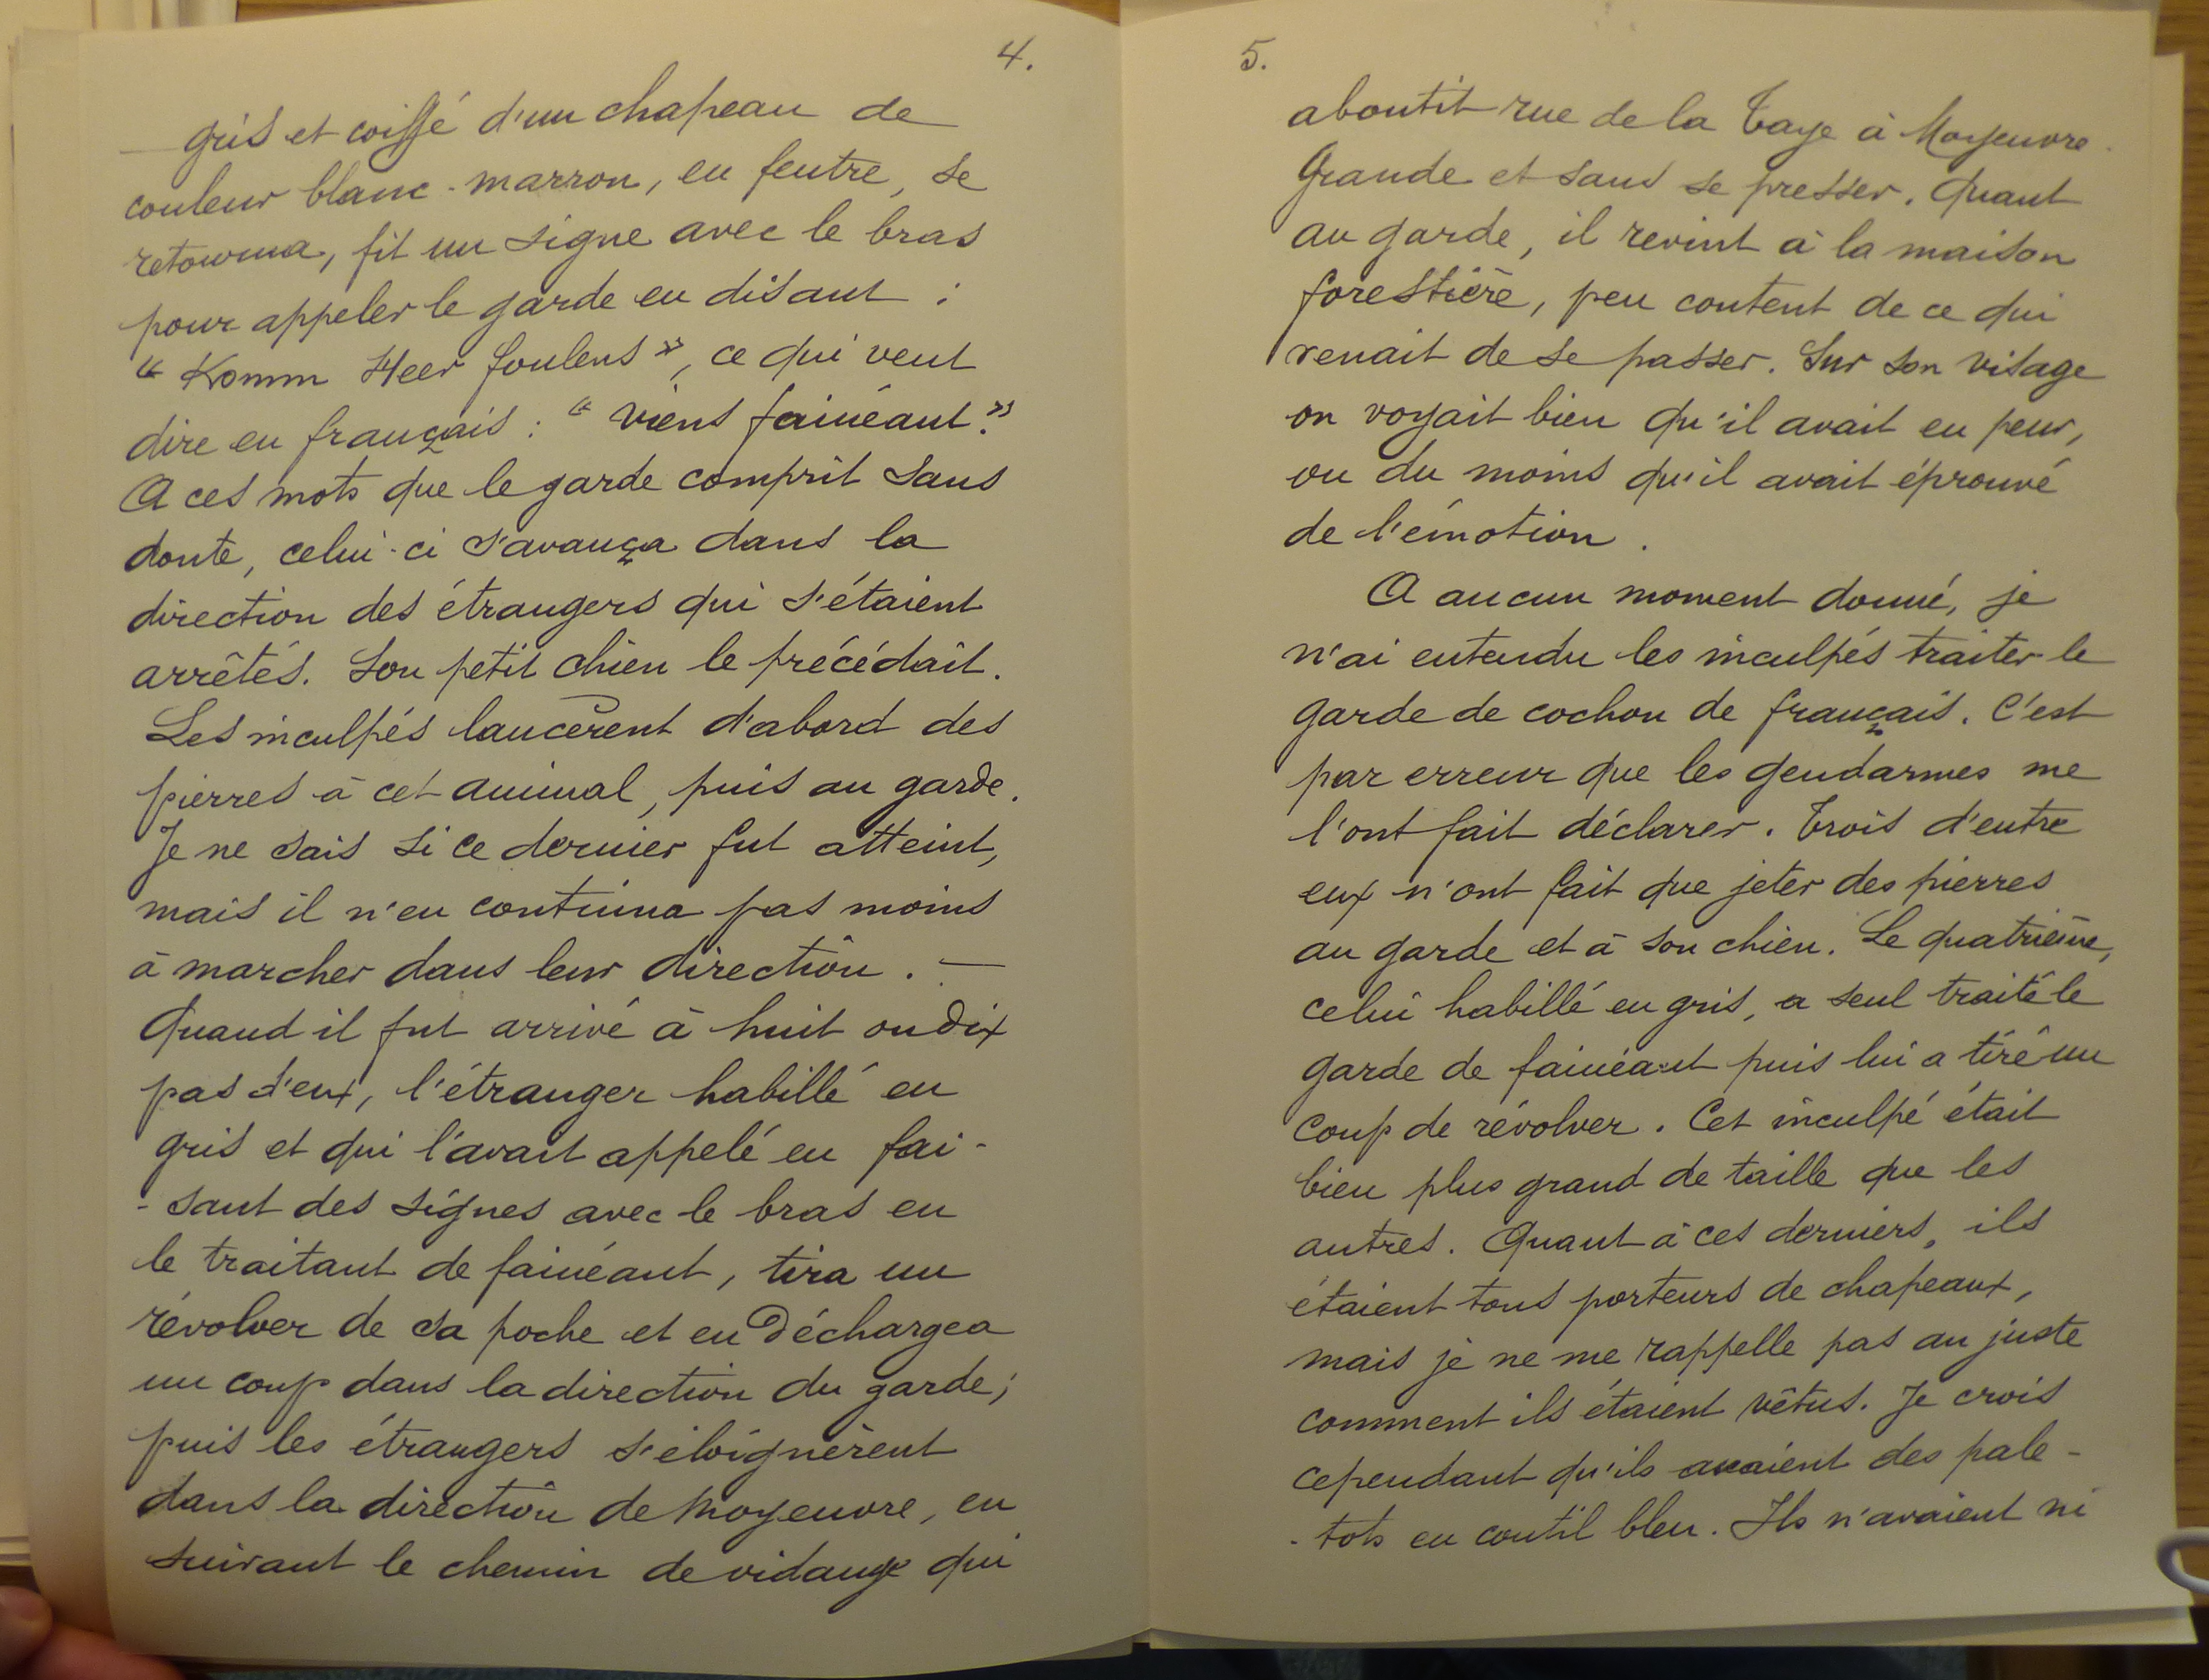 4.
gris et coiffé d'un chapeau de
couleur blanc-marron, en feutre, se
retourna, fit un signe avec le bras
pour appeler le garde en disant :
« Komm Heer foulens », ce qui veut
dire en français : « viens fainéant. »
A ces mots que le garde comprit sans
doute, celui-ci s'avança dans la
direction des étrangers qui s'étaient
arrêtés. Son petit chien le précédait.
Les inculpés lancèrent d'abord des
pierres à cet animal, puis au garde.
Je ne sais si ce dernier fut atteint,
mais il n'en continua pas moins
à marcher dans leur direction. —
Quand il fut arrivé à huit ou dix
pas d'eux, l'étranger habillé en
gris et qui l'avait appelé en fai-
-sant des signes avec le bras en
le traitant de fainéant, tira un
révolver de sa poche et en déchargea
un coup dans la direction du garde;
puis les étrangers s'éloignèrent
dans la direction de Moyeuvre, en
suivant le chemin de vidange qui
5.
aboutit rue de la Taye à Moyeuvre-
Grande et sans se presser. Quant
au garde, il revint à la maison
forestière, peu content de ce qui
venait de se passer. Sur son visage
on voyait bien qu'il avait eu peur,
ou du moins qu'il avait éprouvé
de l'émotion.
A aucun moment donné, je
n'ai entendu les inculpés traiter le
garde de cochon de français. C'est
par erreur que les gendarmes me
l'ont fait déclarer. Trois d'entre
eux n'ont fait que jeter des pierres
au garde et à son chien. Le quatrième,
celui habillé en gris, a seul traité le
garde de fainéant puis lui a tiré un
coup de révolver. Cet inculpé était
bien plus grand de taille que les
autres. Quant à ces derniers, ils
étaient tous porteurs de chapeaux,
mais je ne me rappelle pas au juste
comment ils étaient vêtus. Je crois
cependant qu'ils avaient des pale-
-tots en coutil bleu. Ils n'avaient ni